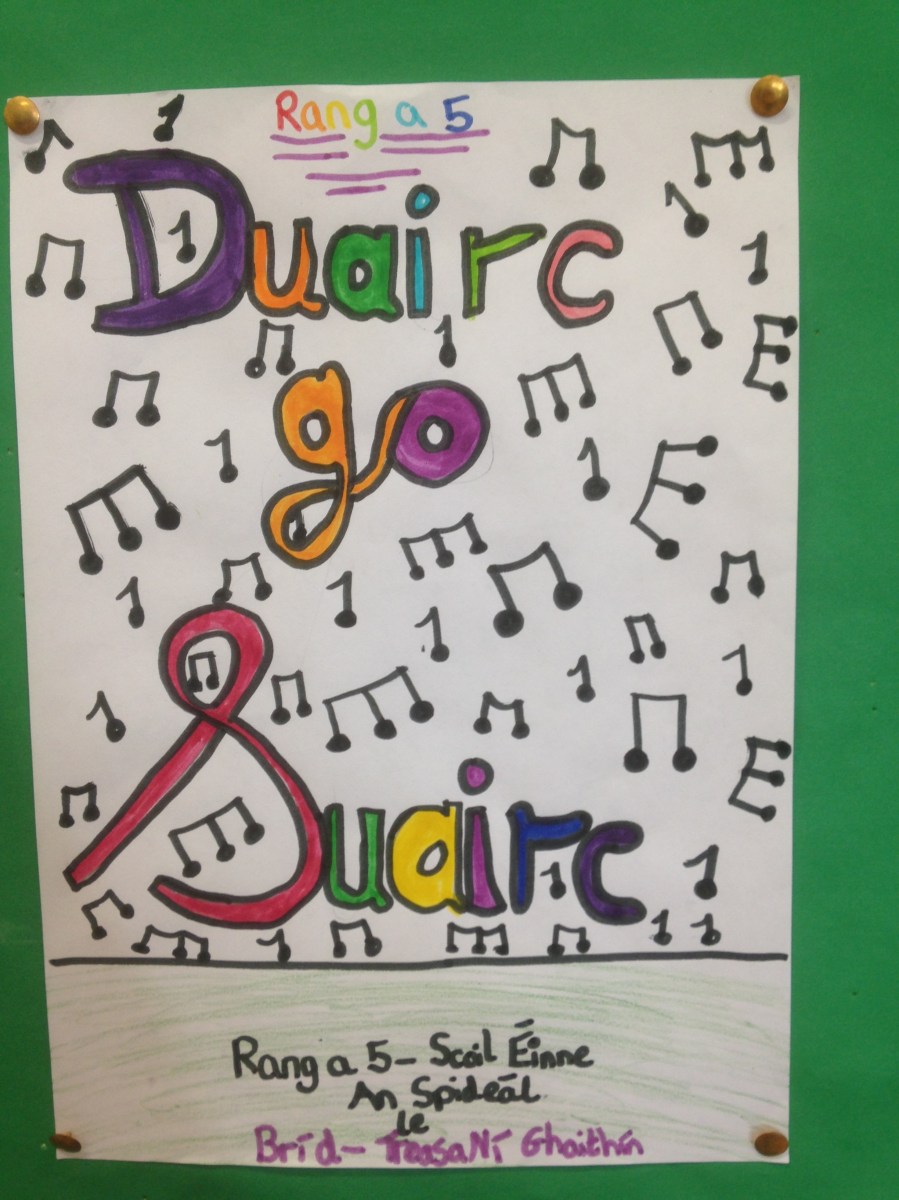 Rang a 5
Duairc
go
Suairc
Rang a 5 – Scoil Éinne
An Spidéal
le
Bríd – Treasa Ní Ghaithín